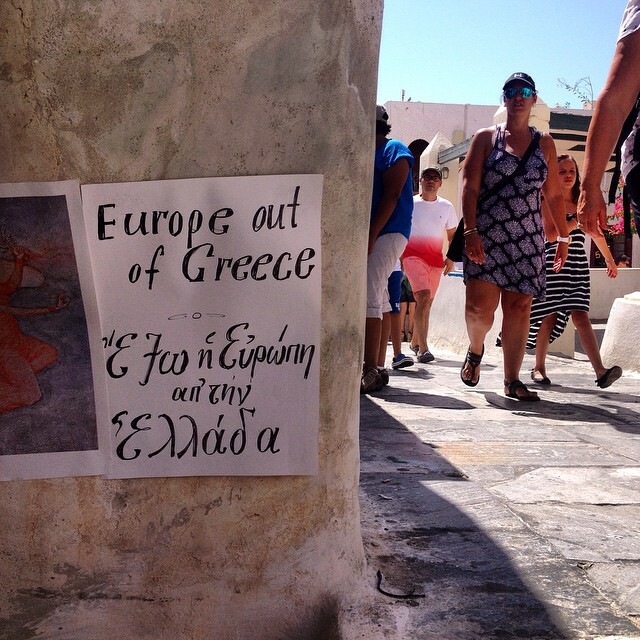 Europe out
of Greece
Ἔξω ἡ Εὐρώπη
ἀπ' τὴν
Ἑλλάδα